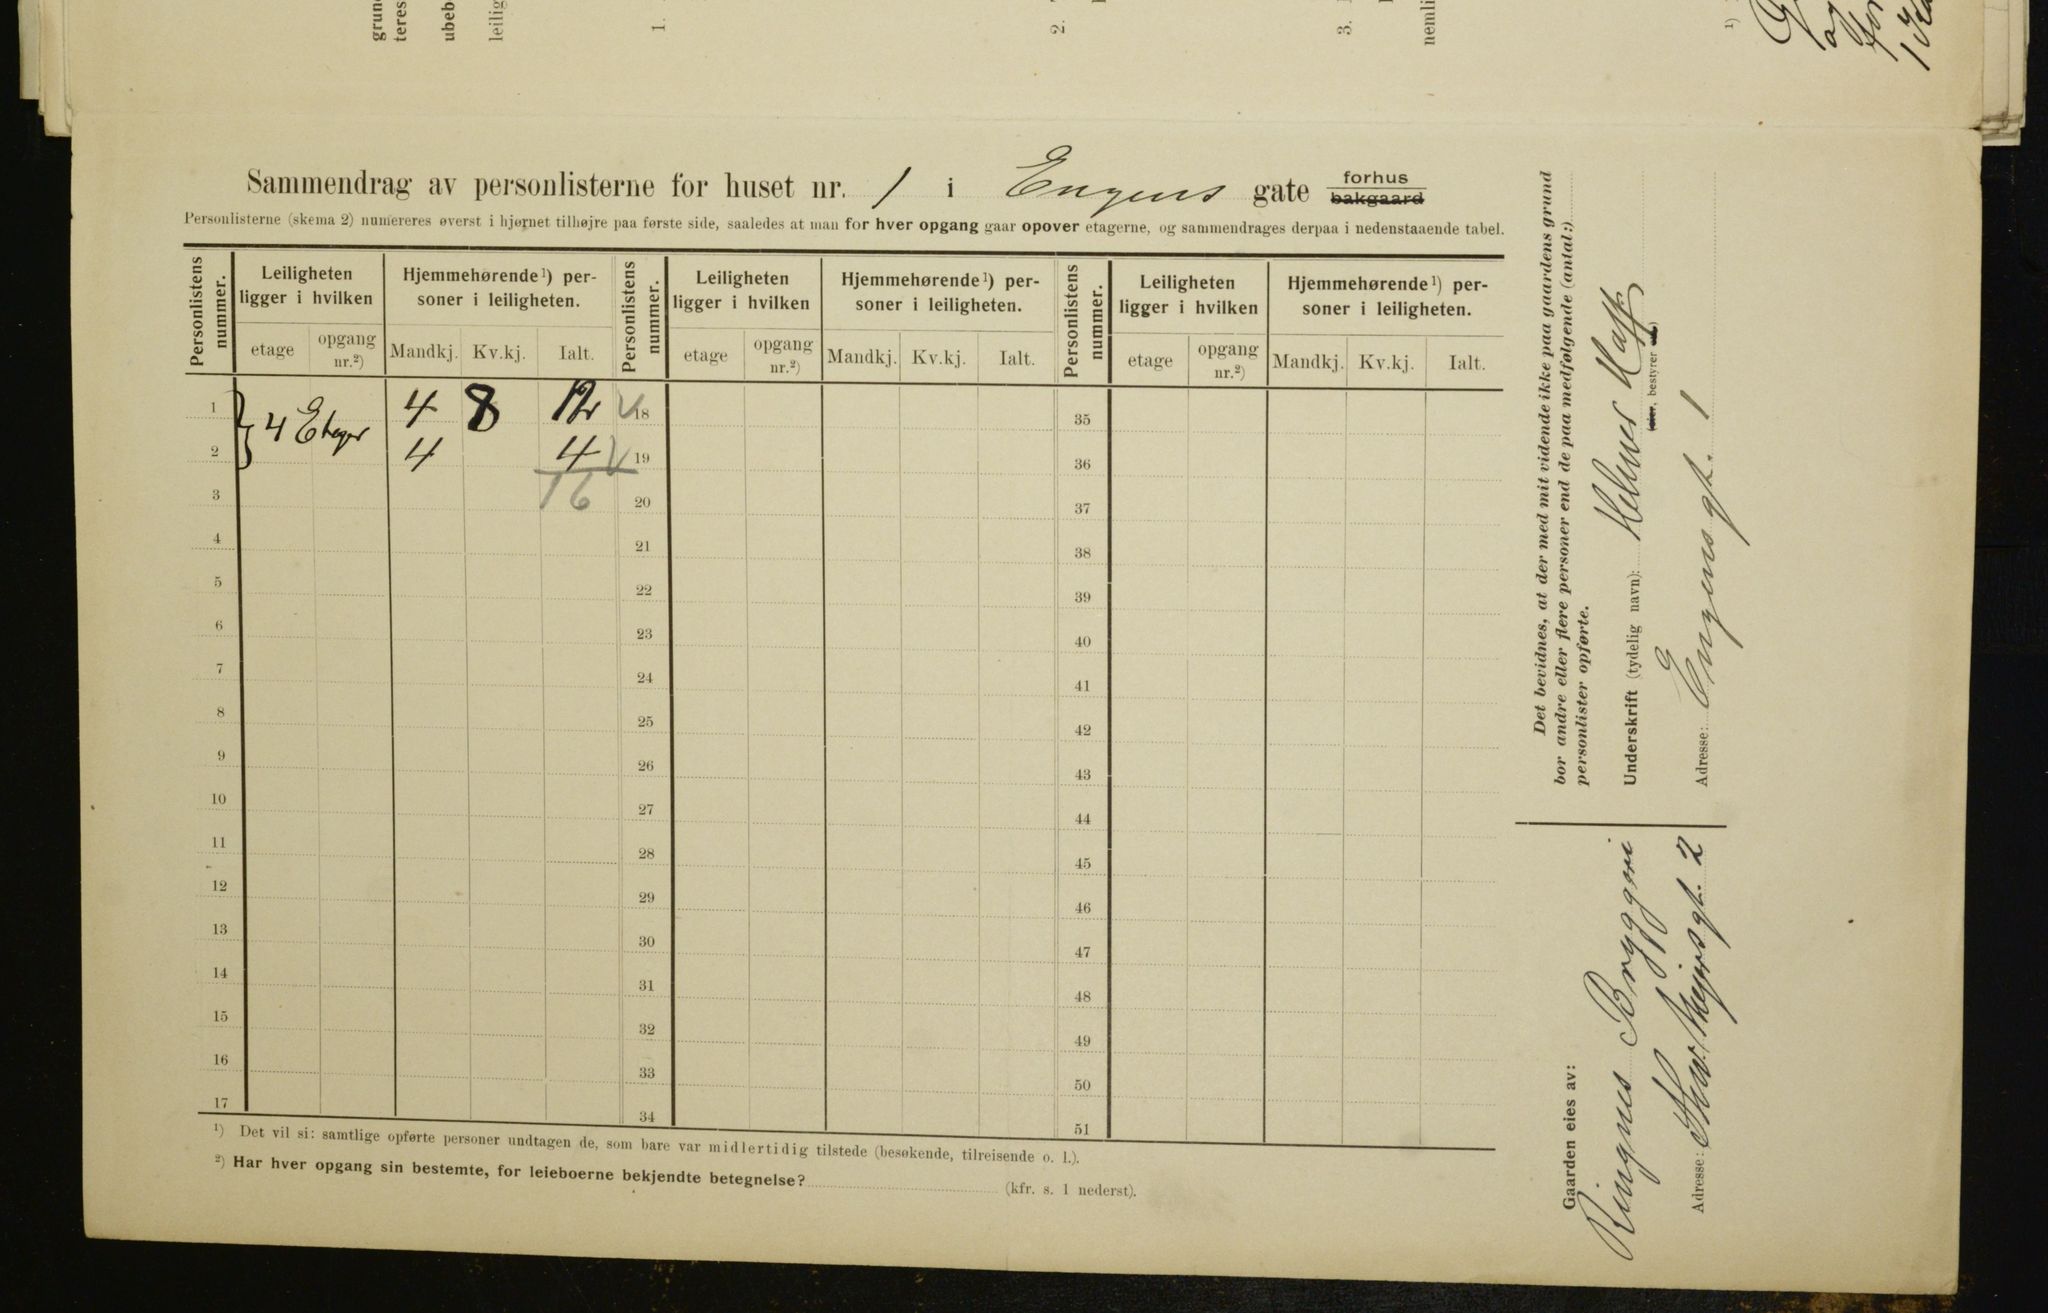 grun
teres
ubeb
leilig
1.
2.
3.
nemli
1)
Sammendrag av personlisterne for huset nr. 1 i Engens gate forhus
bakgaard
Personlisterne (skema 2) numereres øverst i hjørnet tilhøjre paa første side, saaledes at man for hver opgang gaar opover etagerne, og sammendrages derpaa i nedenstaaende tabel.
Personlistens nummer. Leiligheten ligger i hvilken Hjemmehørende¹) personer i leiligheten. Personlistens nummer. Leiligheten ligger i hvilken Hjemmehørende¹) personer i leiligheten. Personlistens nummer. Leiligheten ligger i hvilken Hjemmehørende¹) personer i leiligheten.
etage opgang nr.²) Mandkj. Kv.kj. Ialt. etage opgang nr.²) Mandkj. Kv.kj. Ialt. etage opgang nr.²) Mandkj. Kv.kj. Ialt.
1 4 Etager 4 8 12 18 35
2 4 4 19 36
3 16 20 37
4 21 38
5 22 39
6 23 40
7 24 41
8 25 42
9 26 43
10 27 44
11 28 45
12 29 46
13 30 47
14 31 48
15 32 49
16 33 50
17 34 51
¹) Det vil si: samtlige opførte personer undtagen de, som bare var midlertidig tilstede (besøkende, tilreisende o. l.).
²) Har hver opgang sin bestemte, for leieboerne bekjendte betegnelse? (kfr. s. 1 nederst).
Det bevidnes, at der med mit vidende ikke paa gaardens grund
bor andre eller flere personer end de paa medfølgende (antal:)
personlister opførte.
Underskrift (tydelig navn): Helmer
(eier, bestyrer etc.)
Adresse: Engens gt. 1
Gaarden eies av:
Ringnes Bryggeri
Adresse: Thv. Meyers gt. 2